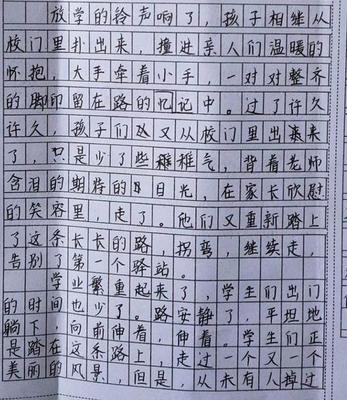 放学的铃声响了，孩子相继从
校门里扑出来，撞进亲人们温暖的
怀抱，大手牵着小手，一对对整齐
的脚印留在路的忆记中。过了许久
许久，孩子们又从校门里出来
了，只是少了些稚气，背着老师
含泪的期待的目光，在家长欣慰
的笑容里，走了。他们又重新踏上
了这条长长的路，拐弯，继续走，
告别了第一个驿站。
学业繁重起来了，学生们出门
的时间也少了。路安静了，平坦地
躺下，向前伸着，伸着。学生们正
是踏在这条路上，走过一个又一个
美丽的风景，但是，从未有人掉过